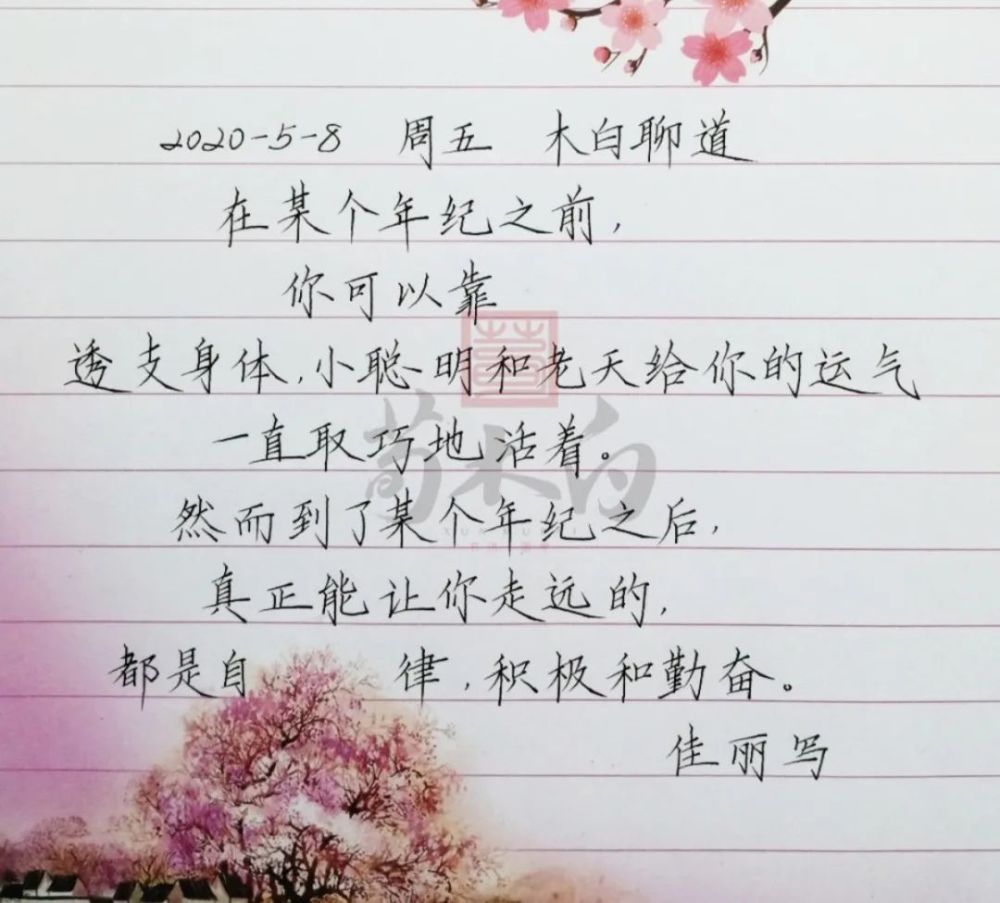 2020-5-8 周五 木白聊道
在某个年纪之前,
你可以靠
透支身体,小聪明和老天给你的运气
一直取巧地活着。
荀木白
然而到了某个年纪之后,
真正能让你走远的,
都是自 律,积极和勤奋。
佳丽写